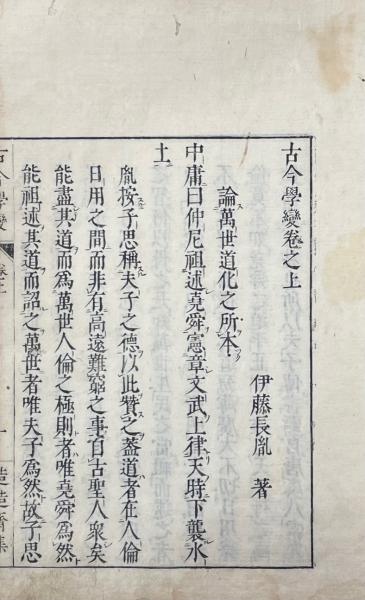 古今學變卷之上
伊藤長胤 著
論萬世道化之所本
中庸曰仲尼祖述堯舜憲章文武上律天時下襲水
土
胤按子思稱夫子之德以此贊之蓋道者在人倫
日用之間而非有高遠難窮之事自古聖人衆矣
能盡其道而爲萬世人倫之極則者唯堯舜爲然
能祖述其道而詔之萬世者唯夫子爲然故子思
古今學變 卷上 一